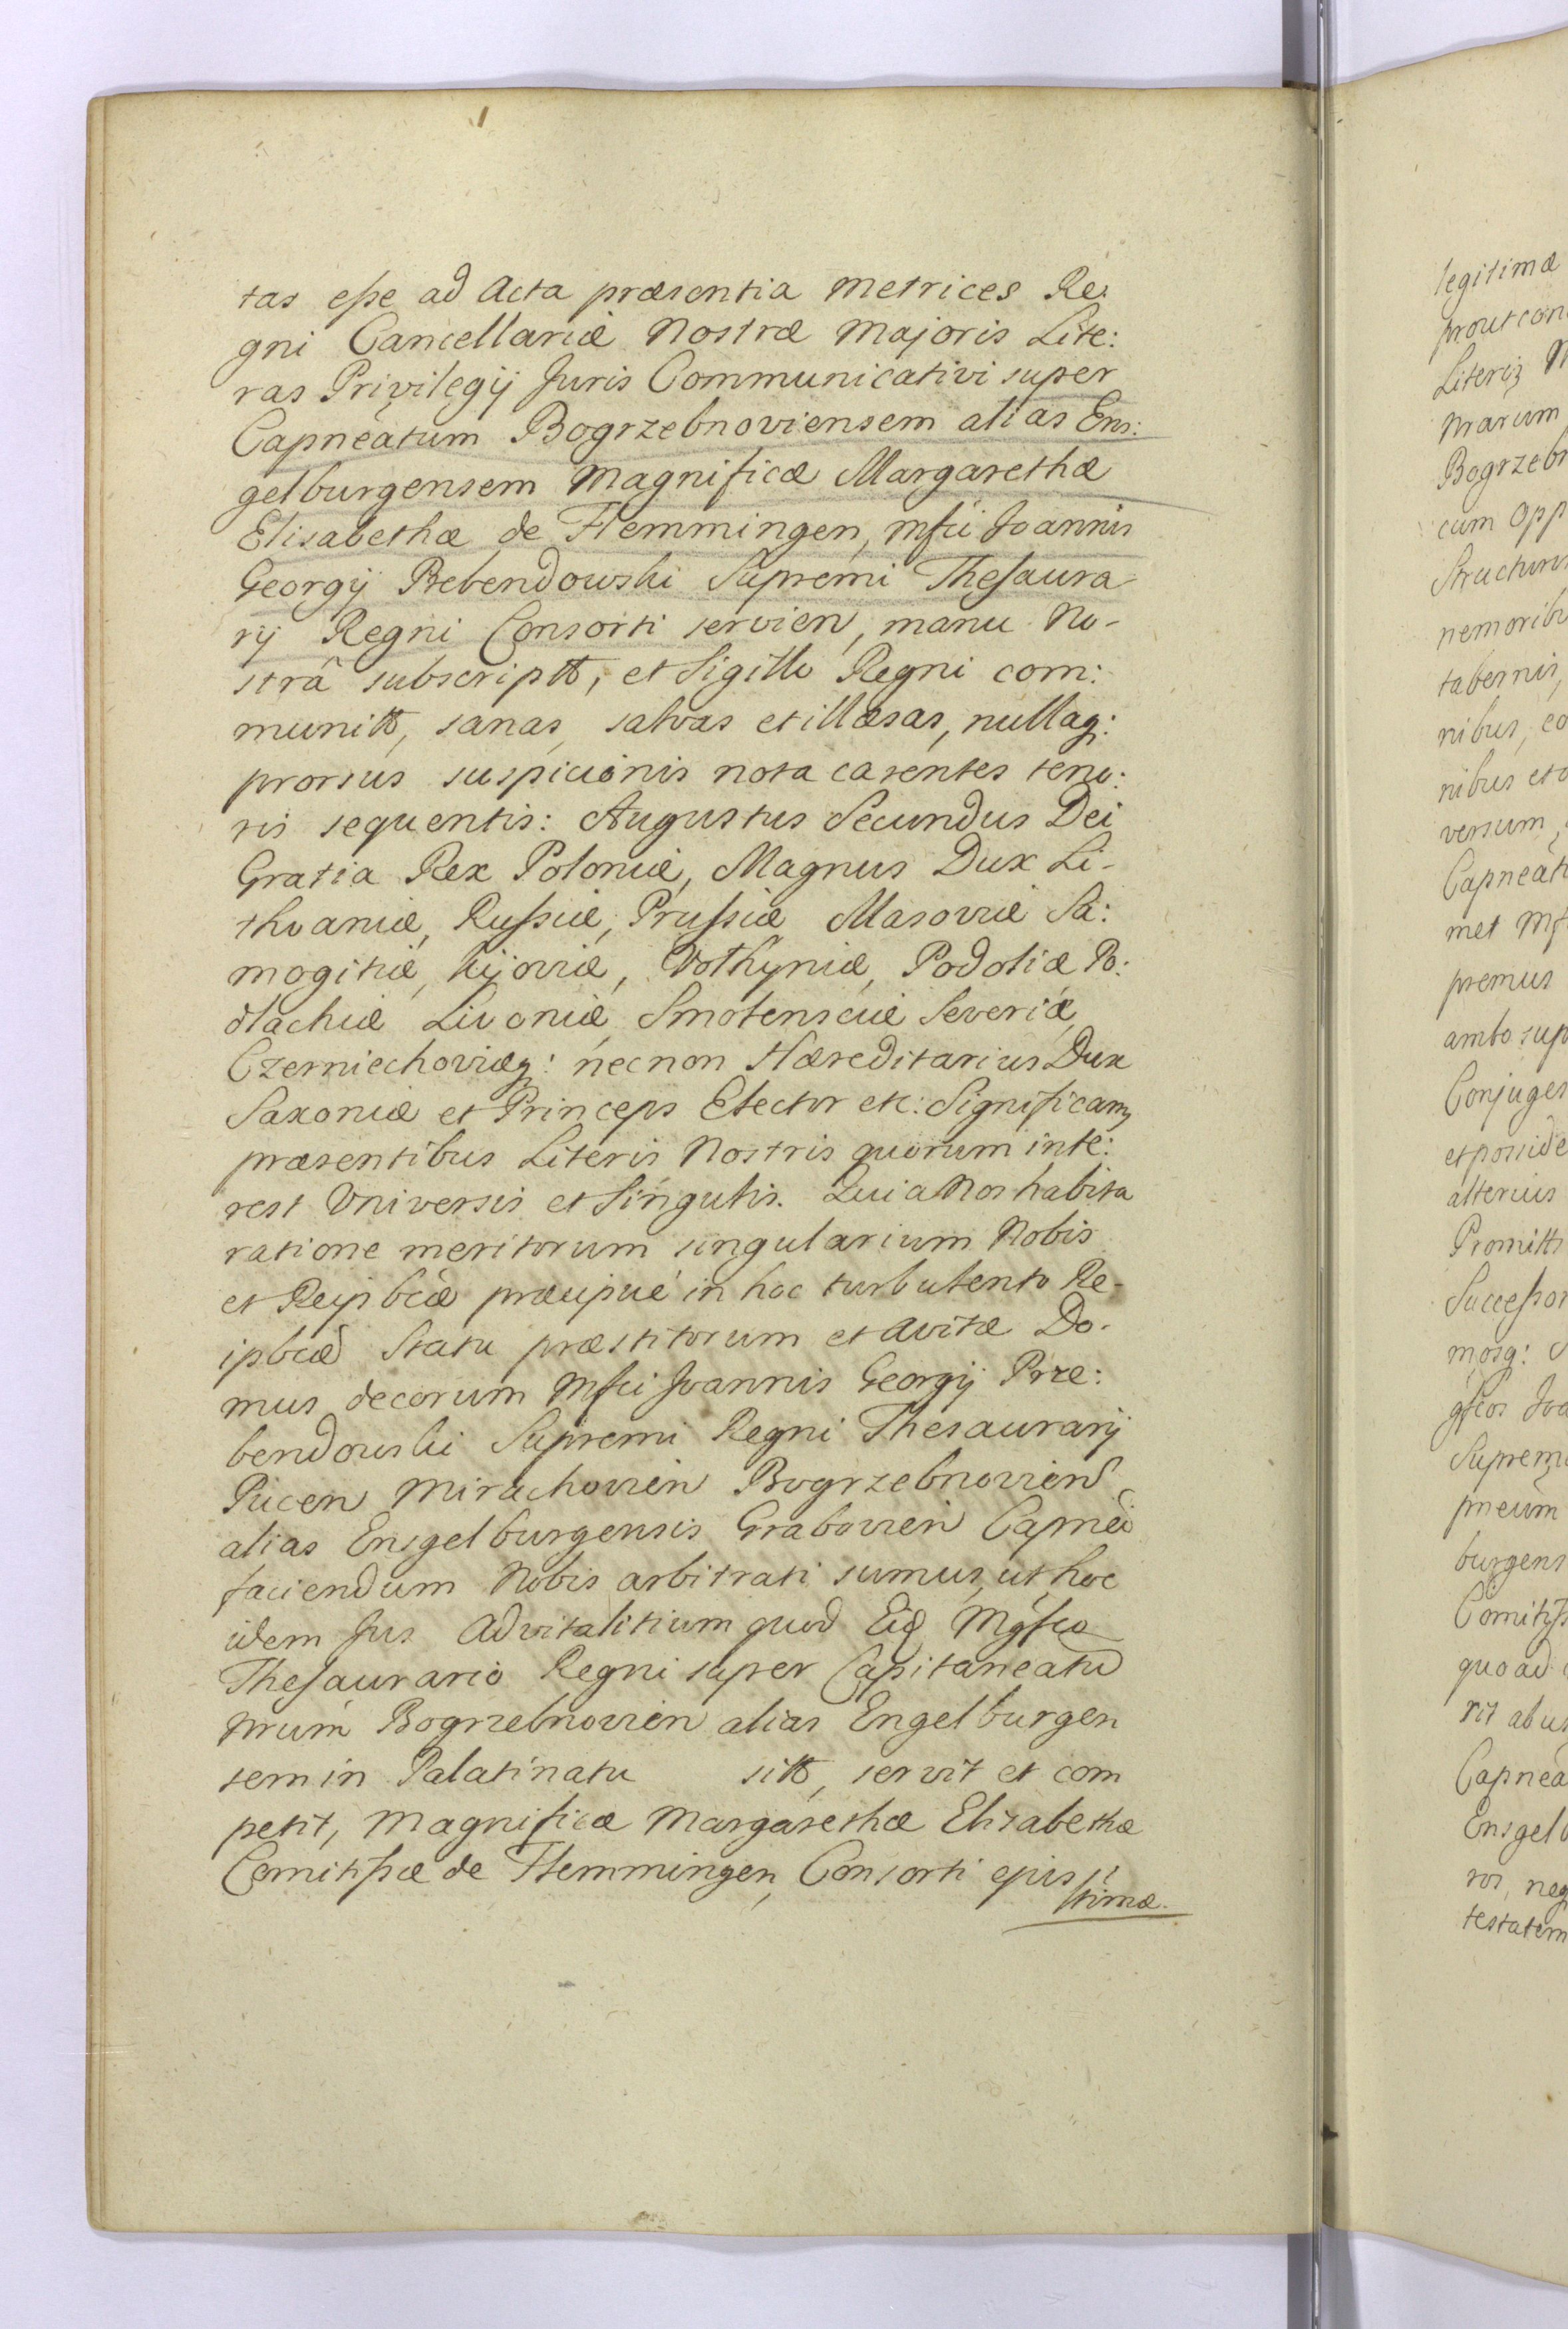 tas eſse ad Acta præsentia Metrices Re:
gni Cancellariæ Nostræ Majoris Lite:
ras Privilegij Juris Communicativi super
Capneatum Bogrzebnoviensem alias Ens:
gelburgensem Magnificæ Margarethæ
Elisabethæ de Flemmingen, Mfci Joannis
Georgij Prebendowski Supremi Theſaura
rij Regni Consorti servien, manu No-
strâ subscriptt, et Sigillo Regni com:
munitt, sanas, salvas et illæsas, nullaq:
prorsus suspicionis nota carentes teno:
ris sequentis: Augustus Secundus Dei
Gratia Rex Poloniæ, Magnus Dux Li-
thvaniæ, Ruſsiæ, Pruſsiæ Masoviæ Sa:
mogitiæ, Kijoviæ, Volhyniæ, Podoliæ Po:
dlachiæ Livoniæ Smolensciæ Severiæ
Czerniechoviæq: nec non Hæreditarius Dux
Saxoniæ et Princeps Elector etc: Significamꝫ
præsentibus Literis Nostris quorum inte:
rest Universis et Singulis. Quia Nos habita
ratione meritorum singularium Nobis
et Reipbcæ præcipuè in hoc turbulento Re-
ipbcæ Statu præstitorum et avitæ Do-
mus decorum Mfci Joannis Georgij Prze:
bendowski Supremi Regni Thesaurarij
Pucen Mirachovien Bogrzebnovien
alias Ensgelburgensis Grabovien Capnei
faciendum Nobis arbitrati sumus, ut hoc
idem Jus Advitalitium quod Eid Mgfco
Theſaurario Regni super Capitaneatu
Nrum Bogrzebnovien alias Engelburgen
sem in Palatinatu sitt, servit et com
petit, Magnificæ Margarethæ Elisabethæ
Comitiſsæ de Flemmingen, Consorti ejus
ſtimæ.
legitimæ
prout con
Literiꝫ N
Nrarum
Bogrzeb
cum Opp
Structuris
nemoribu
tabernis,
nibus, co
nibus et o
versum,
Capneat
met Mf
premus
ambo sup
Conjuges
et poside
alterius
Promitt
Succeſsor
mosq: 
gfcos Joa
Supremi
pneum
burgens
Comitiſs
quo ad
rit ab us
Capnea
Ensgelb
ros, neq
testatem